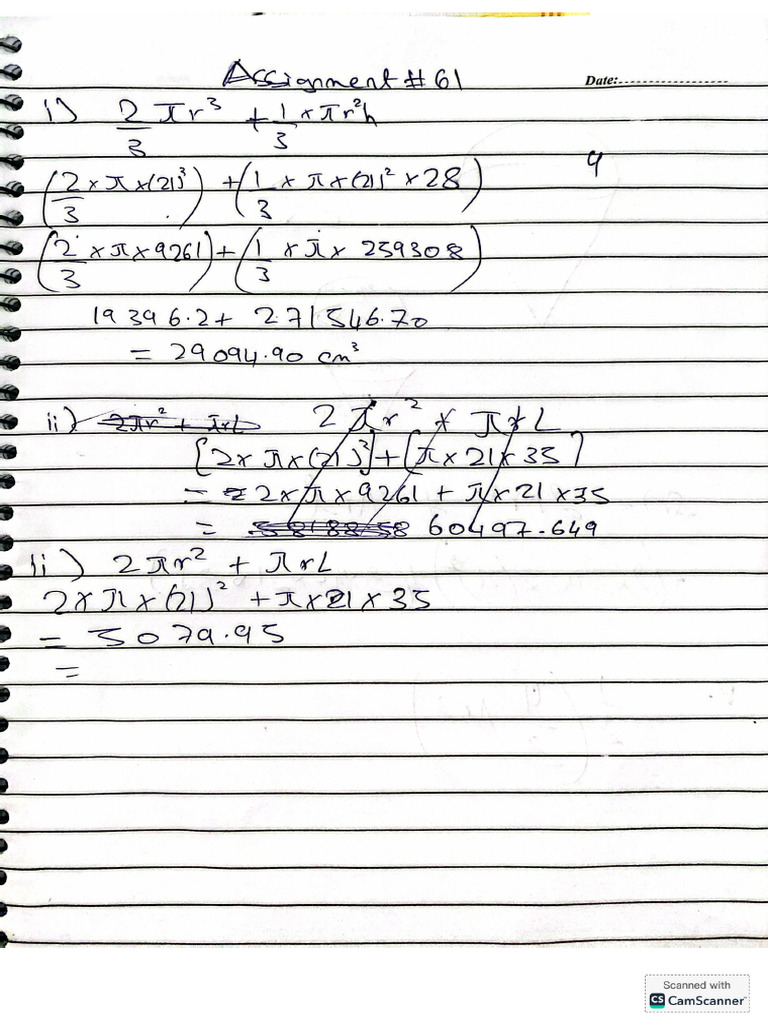 Assignment # 61
Date:
i) 2/3 πr³ + 1/3 × πr²h
9
(2/3 × π × (21)³) + (1/3 × π × (21)² × 28)
(2/3 × π × 9261) + (1/3 × π × 259308)
19396.2 + 271546.70
= 29094.90 cm³
ii) 2πr² + πrL 2πr² + πrL
[2 × π × (21)²] + [π × 21 × 35]
= 2 × π × 9261 + π × 21 × 35
= 60497.649
ii) 2πr² + πrL
2 × π × (21)² + π × 21 × 35
= 5079.95
=
Scanned with
CS CamScanner